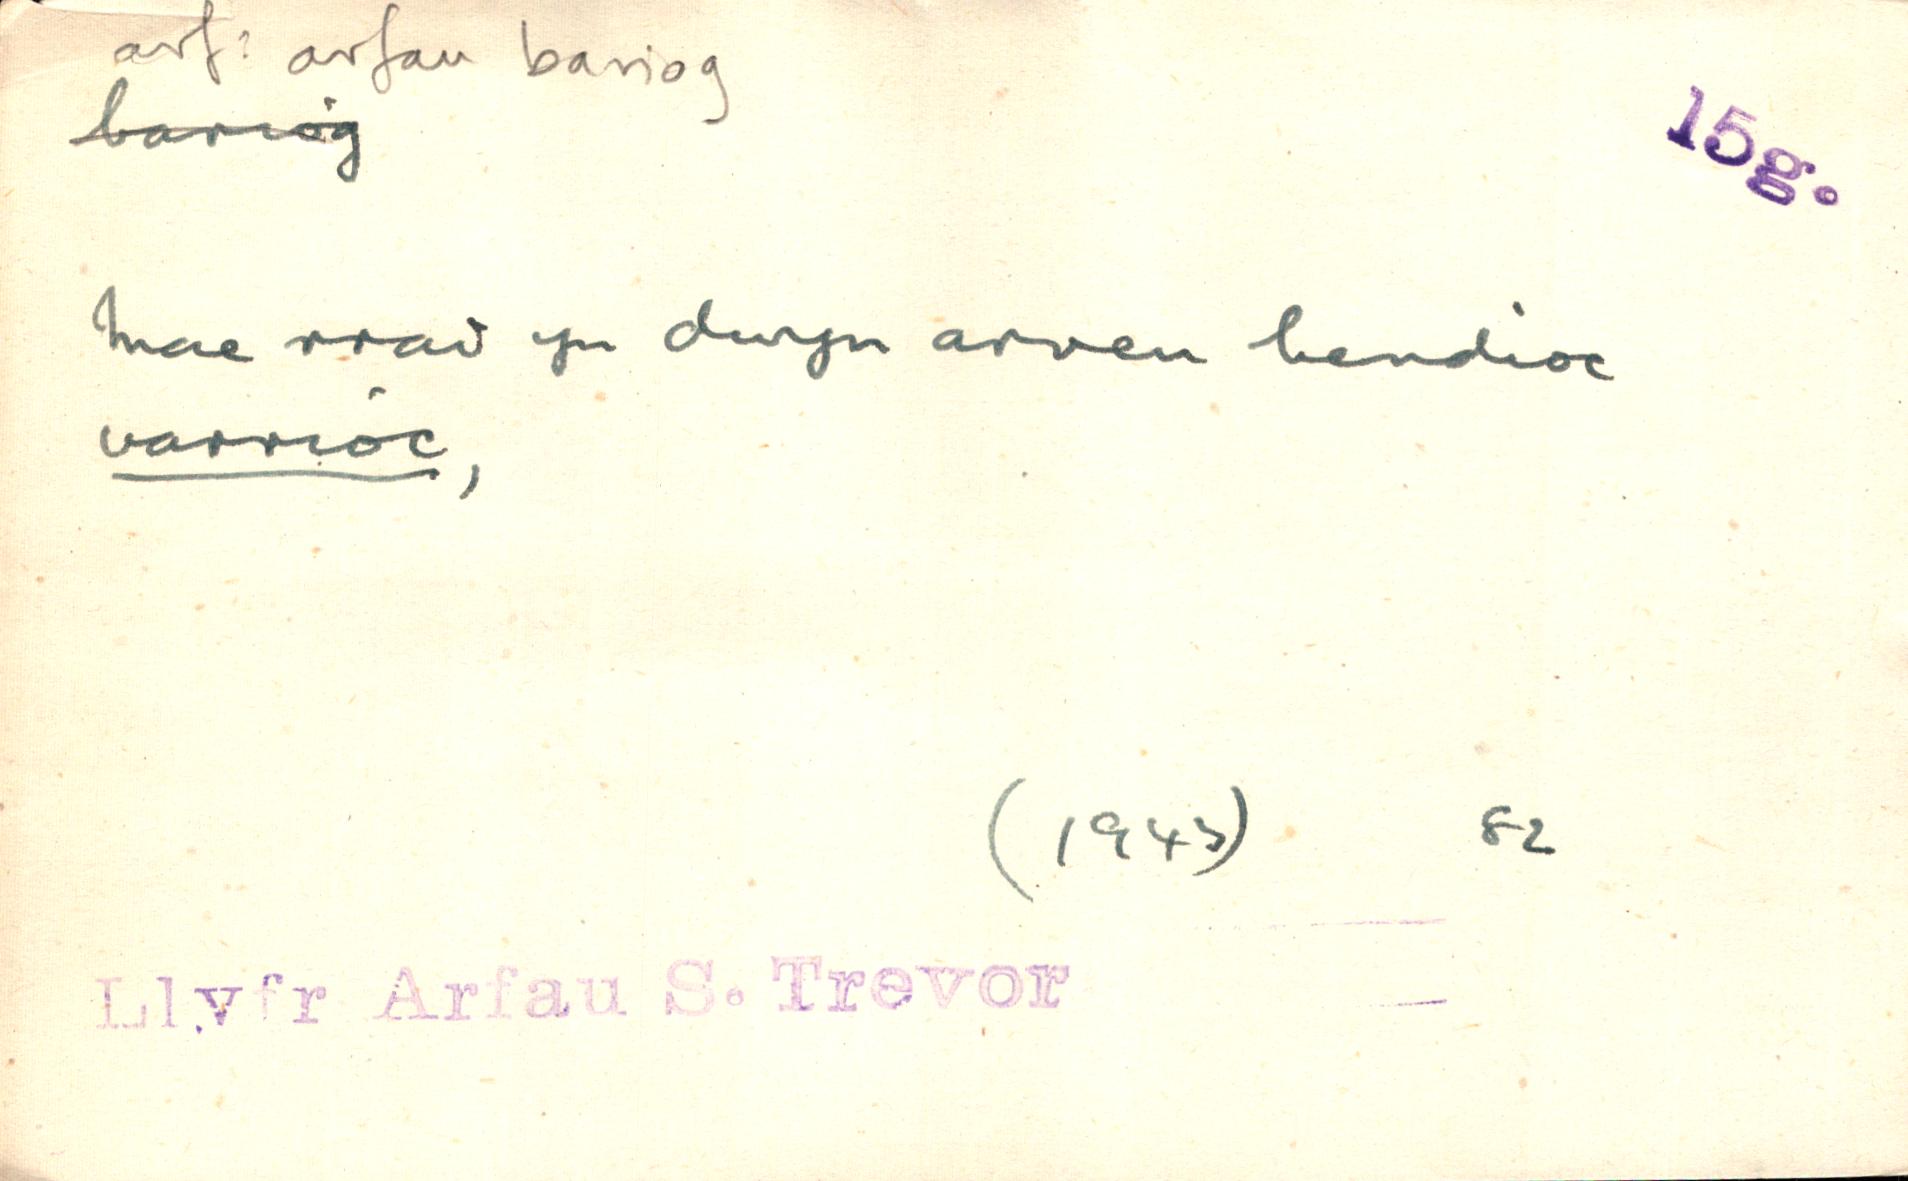 arf: arfau bariog
bariog
15g.
Mae rrai yn dwyn arveu bendioc
varrioc,
(1943) 82
Llyfr Arfau S. Trevor